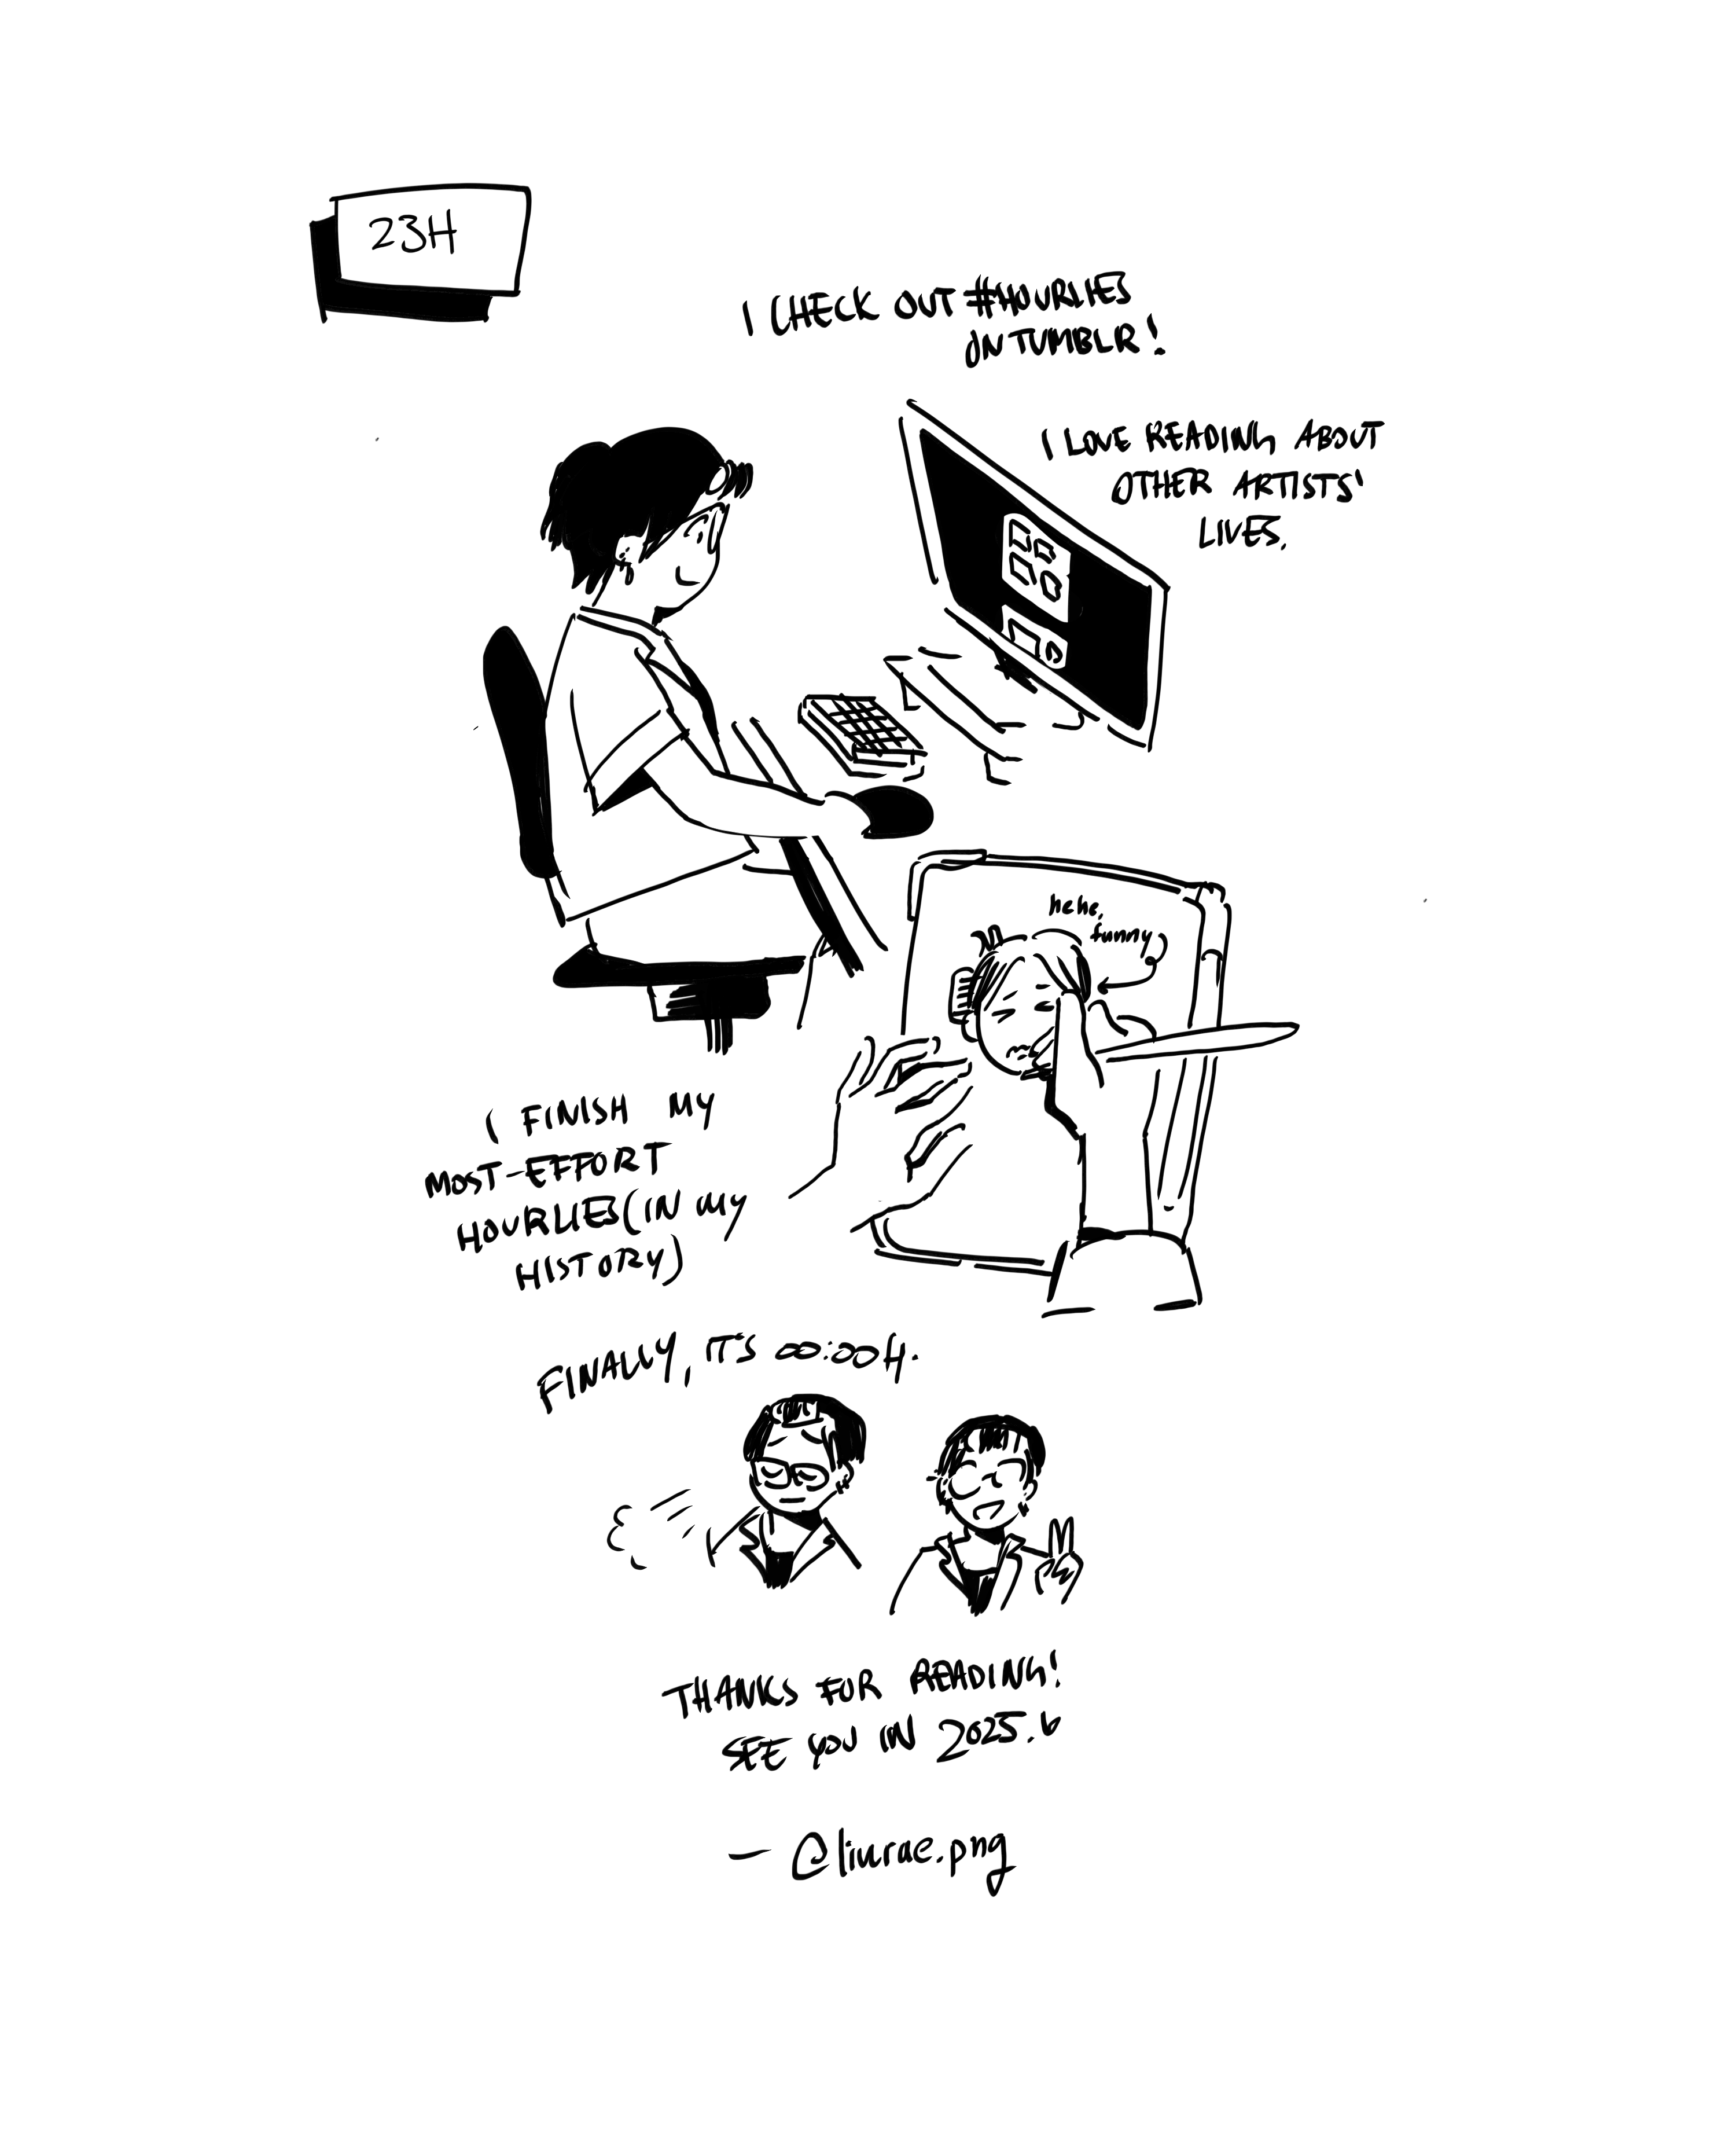 23H
I CHECK OUT #HOURLIES
ON TUMBLR!
I LOVE READING ABOUT
OTHER ARTISTS'
LIVES.
hehe,
funny
I FINISH MY
MOST-EFFORT
HOURLIES (IN MY
HISTORY)
FINALLY, IT'S 00:00H.
THANKS FOR READING!
SEE YOU IN 2025.
— @liurae.png